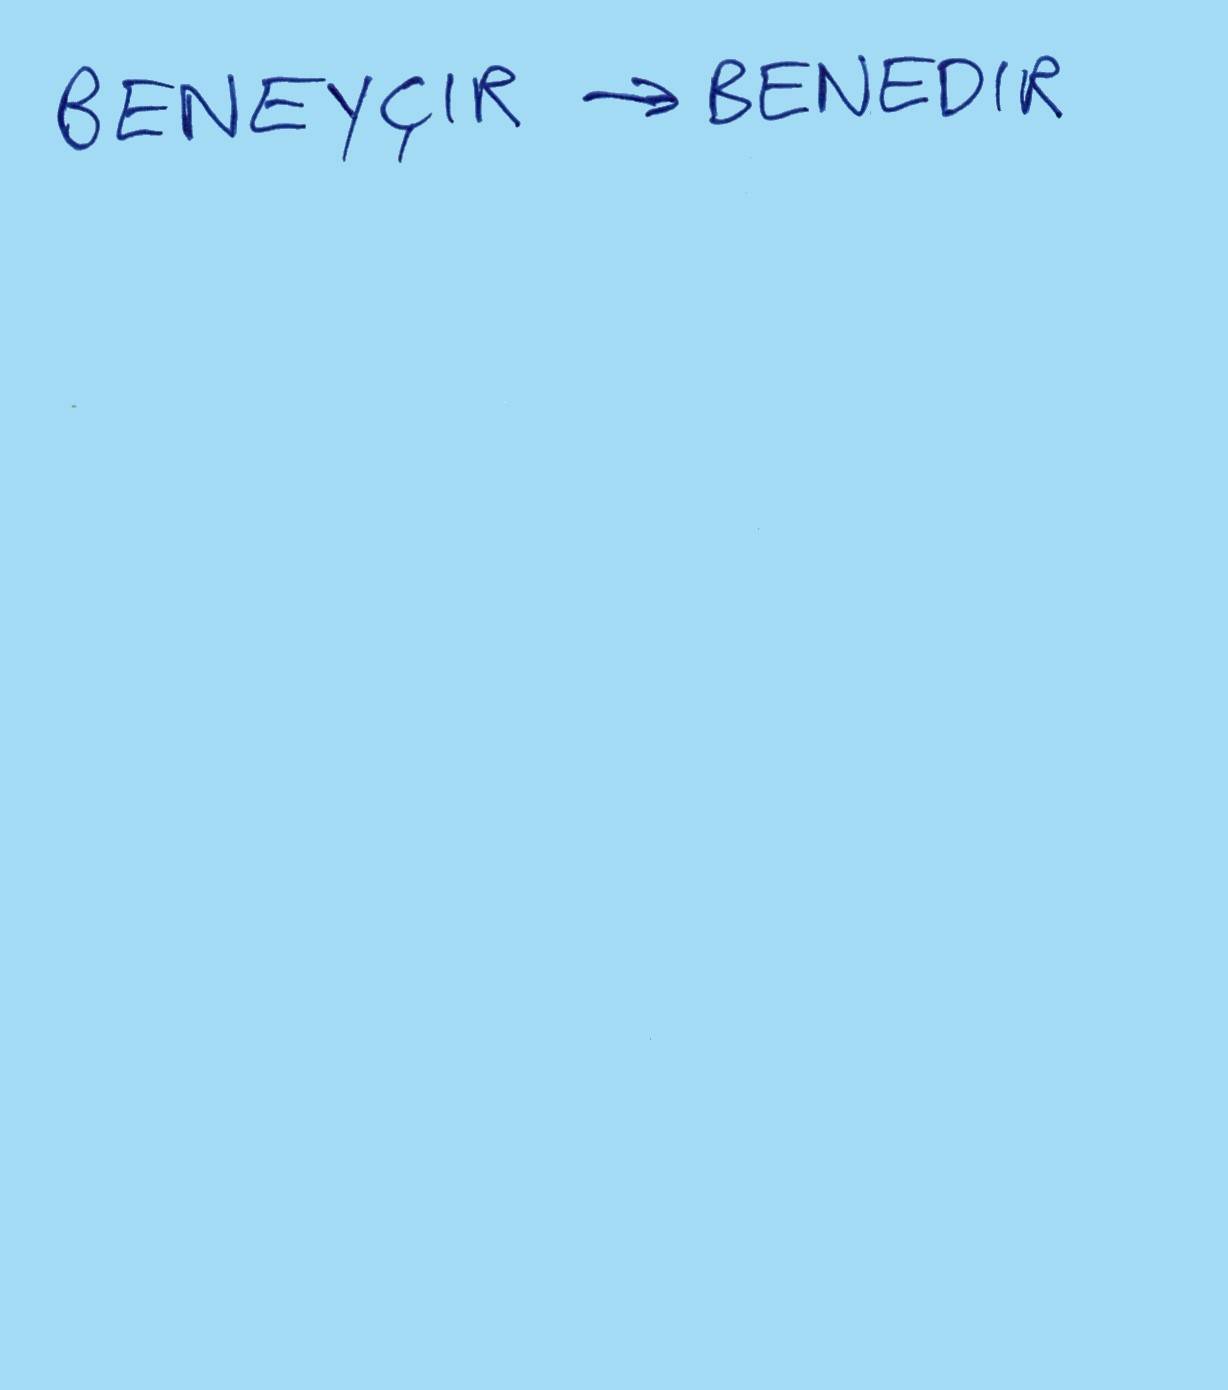 BENEYÇIR → BENEDIR